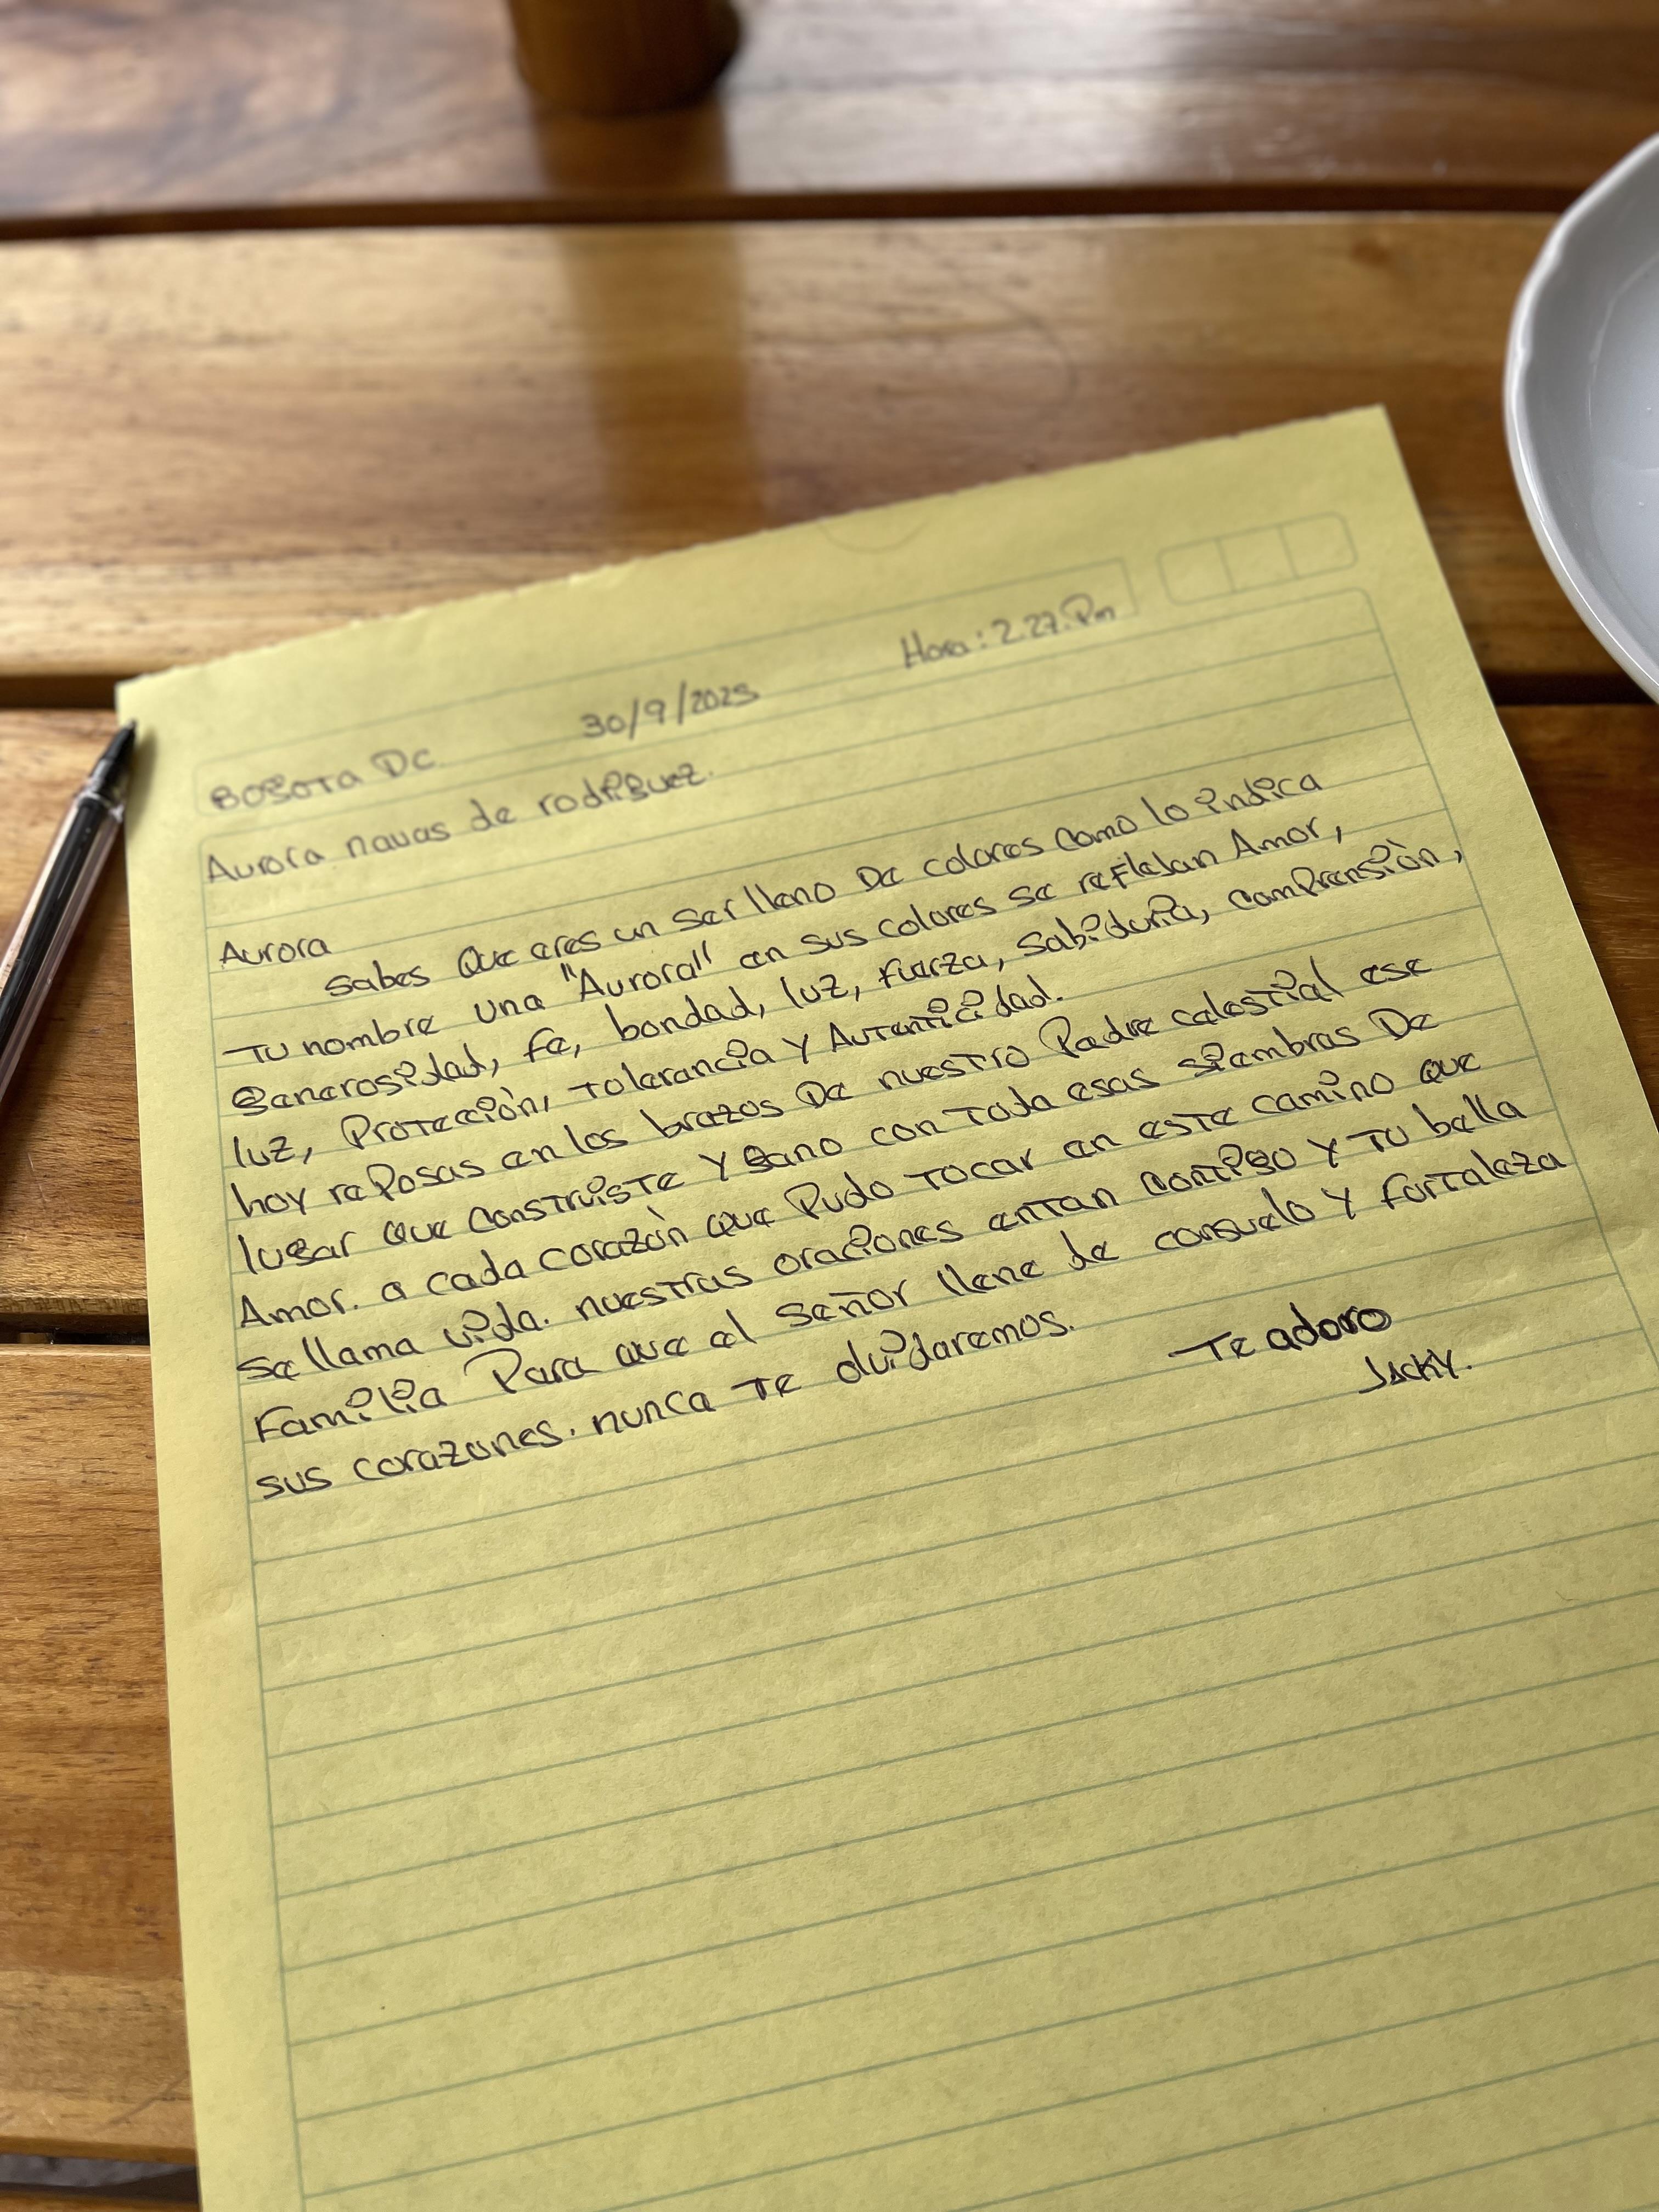 Bogota Dc 30/9/2025 Hora: 2.27.Pm
Aurora navas de rodriguez.
Aurora
Sabes Que eres un ser lleno De colores como lo indica
Tu nombre una "Aurora" en sus colores se reflejan Amor,
Generosidad, fe, bondad, luz, fuerza, sabiduria, comprensiòn,
luz, Protecciòn, Tolerancia Y Autenticidad.
hoy reposas en los brazos De nuestro Padre celestial ese
lugar que construiste Y Gano con Toda esas siembras De
Amor. a cada corazòn que Pudo Tocar en este camino que
se llama vida. nuestras oraciones entan contigo Y Tu bella
Familia Para que el señor llene de consuelo Y fortaleza
sus corazones. nunca Te olvidaremos.
Te adoro
Jacky.